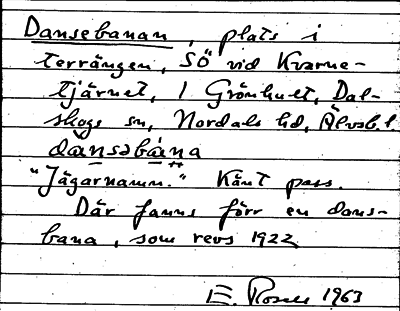 Dansebanan, plats i
terrängen, SÖ vid Kvarne-
tjärnet, 1 Grönhult, Dal-
skogs sn, Nordals hd, Älvsb. l.
dànsəbána
"Jägarnamn." Känt pass.
Där fanns förr en dans-
bana, som revs 1922
E. 1963